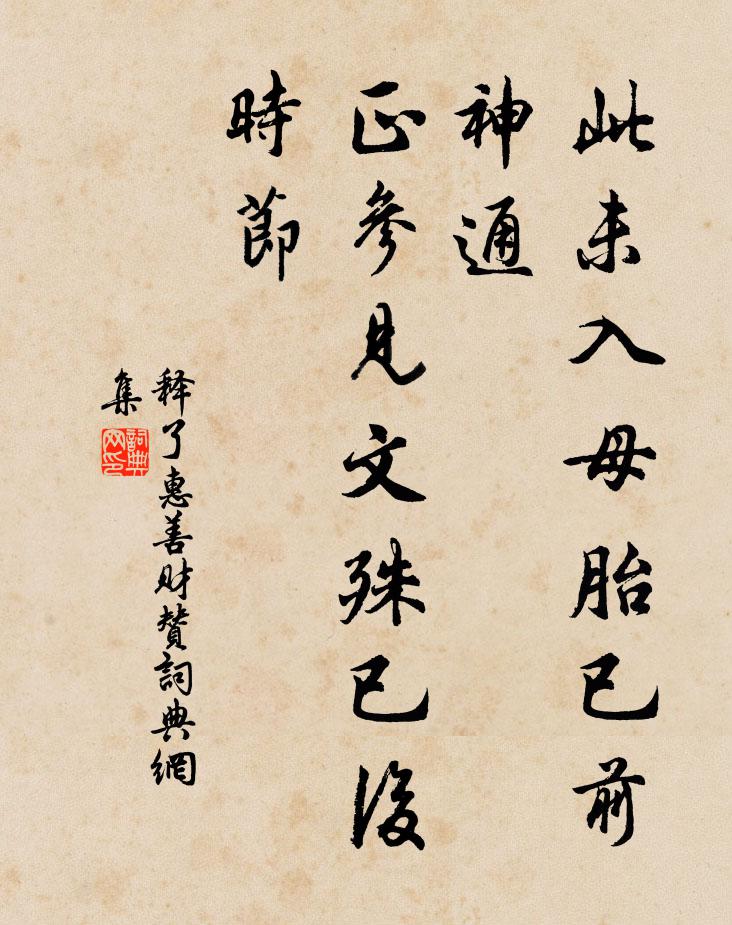 此未入母胎已前
神通
正參見文殊已後
時節
释了惠善財贊詞典網
集
詞典
网印